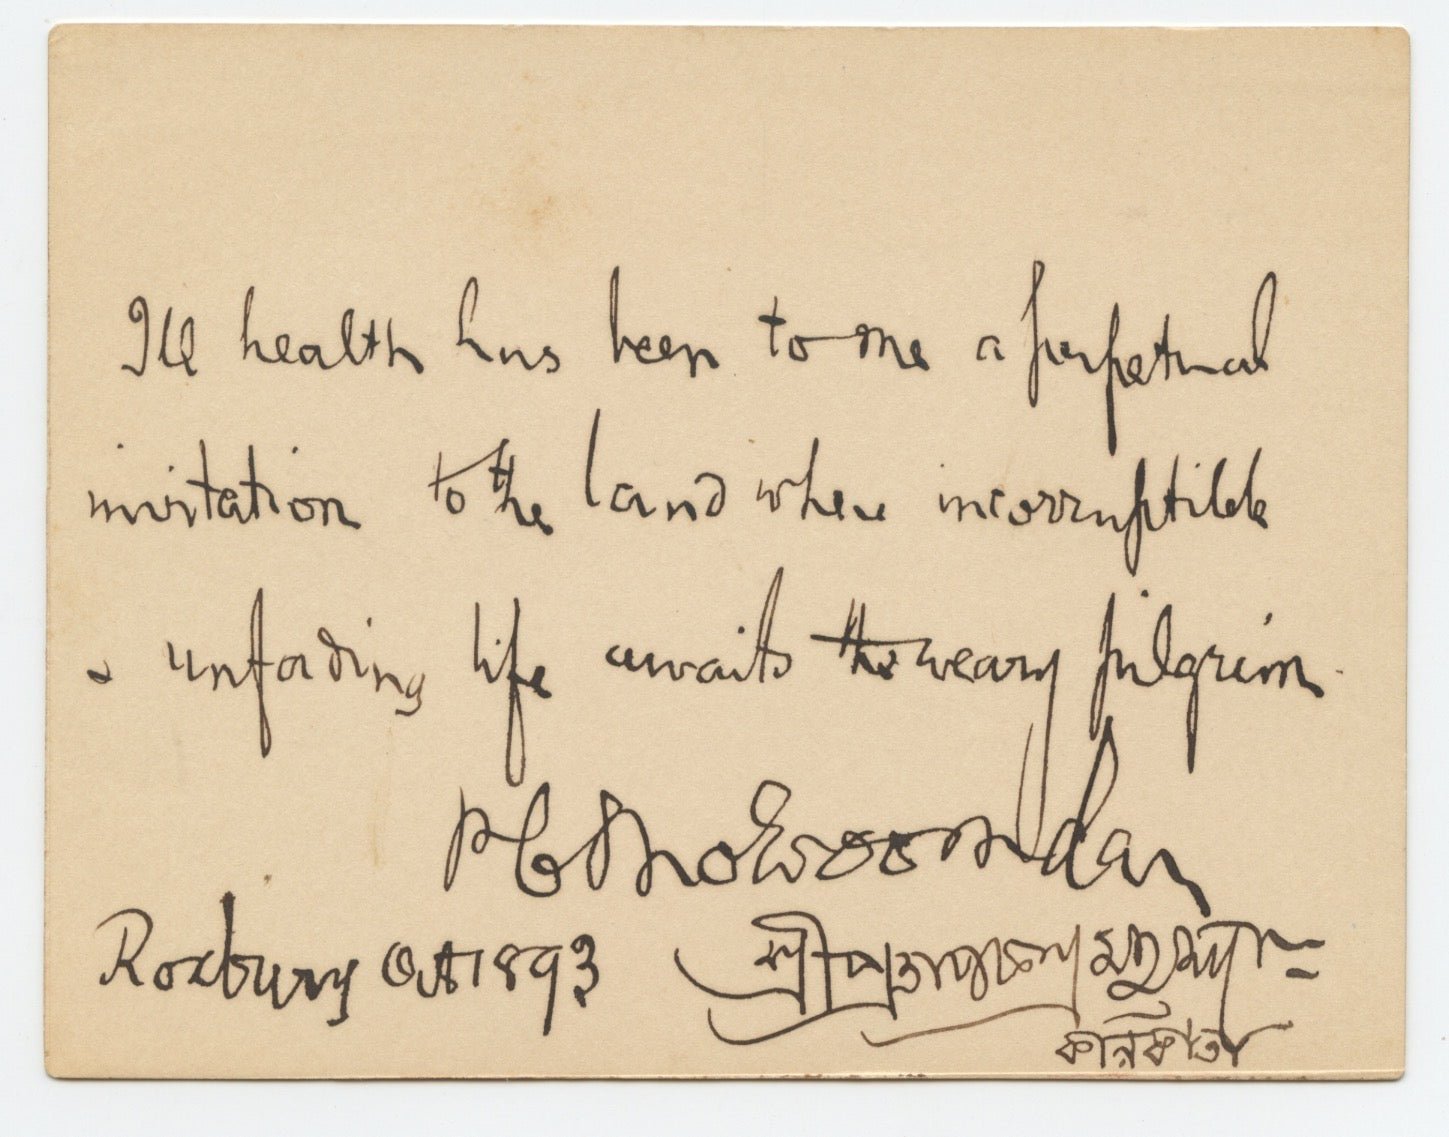 Ill health has been to me a perpetual
invitation to the land where incorruptible
& unfading life awaits the weary pilgrim.
P C Mozoomdar
Roxbury Oct 1893 শ্রীপ্রতাপচন্দ্র মজুমদার
কলিকাতা